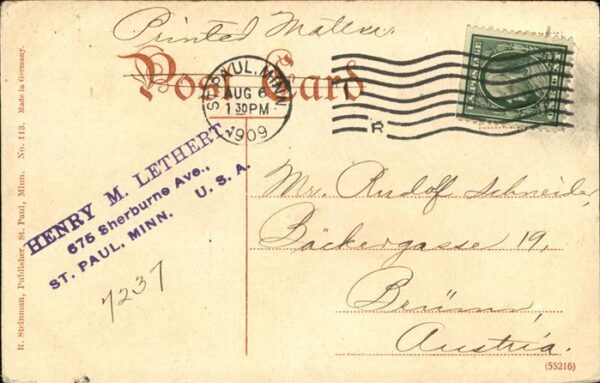 Printed Matter.
Post Card
ST. PAUL, MINN.
AUG 6
1 30 PM
1909
R
HENRY M. LETHERT,
675 Sherburne Ave.,
ST. PAUL, MINN. U. S. A.
7237
Mr. Rudolf Schneider,
Bäckergasse 19,
Brünn,
Austria.
R. Steinman, Publisher, St. Paul, Minn. No. 113. Made in Germany.
(55216)